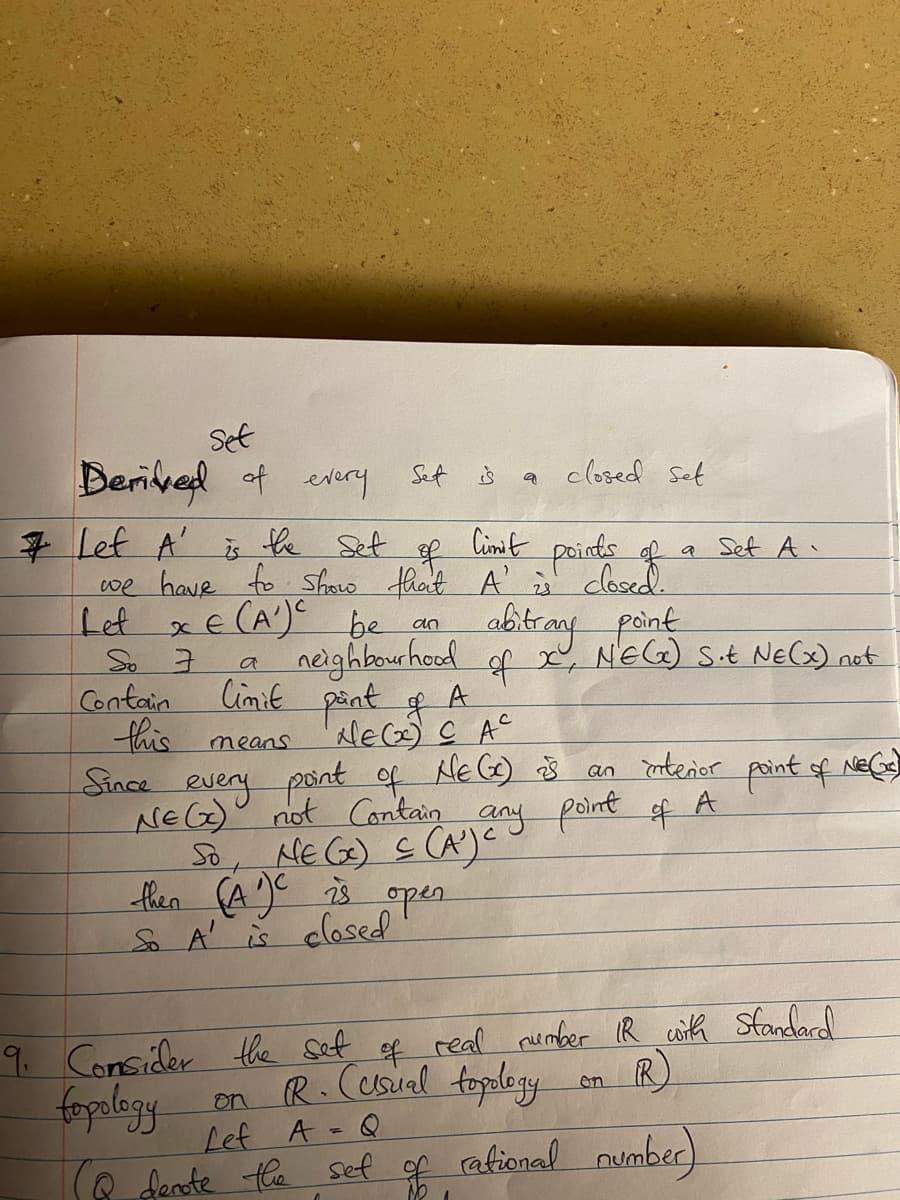 Set
Derived of every Set is a closed set
7 Let A' is the Set of limit points of a Set A.
we have to show that A' is closed.
Let x ∈ (A')ᶜ be an abitrary point
So ∃ a neighbourhood of x, Nε(x) s.t Nε(x) not
Contain limit point of A
this means Nε(x) ⊆ Aᶜ
Since every point of Nε(x) is an interior point of Nε(x)
Nε(x) not Contain any point of A
So, Nε(x) ⊆ (A')ᶜ
then (A')ᶜ is open
So A' is closed
9. Consider the set of real number ℝ with Standard
topology on ℝ. (usual topology on ℝ)
Let A = Q
(Q denote the set of rational number)